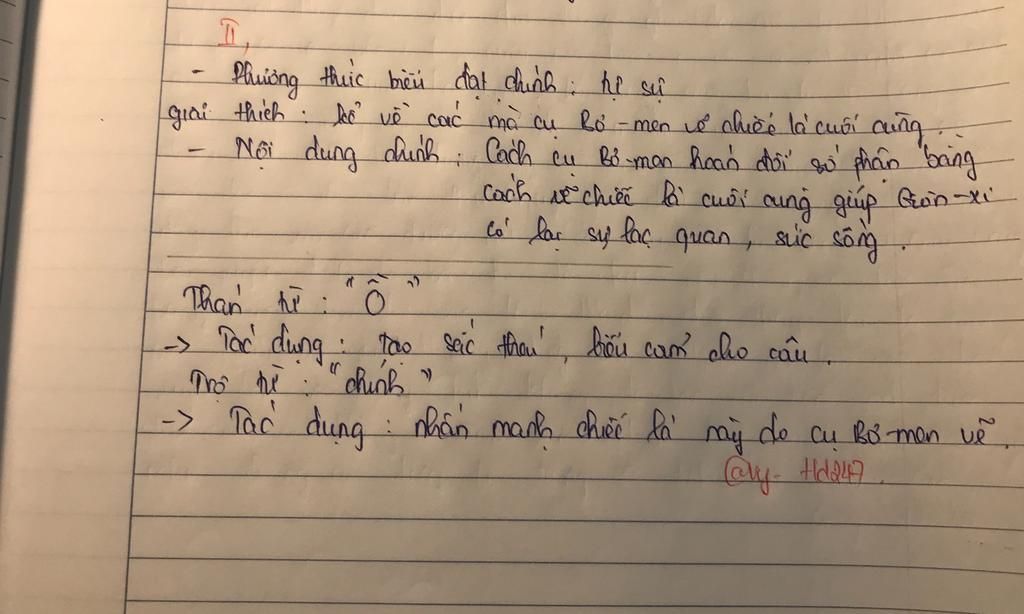 II,
- Phương thức biểu đạt chính : tự sự
giải thích : kể về các mà cụ Bơ-men vẽ chiếc lá cuối cùng.
- Nội dung chính : Cách cụ Bơ-men hoán đổi số phận bằng
cách vẽ chiếc lá cuối cùng giúp Giôn-xi
có lại sự lạc quan, sức sống.
Thán từ : "Ồ"
-> Tác dụng : tạo sắc thái, biểu cảm cho câu.
Trợ từ : "chính"
-> Tác dụng : nhấn mạnh chiếc lá này do cụ Bơ-men vẽ.
@ly-Hd247.